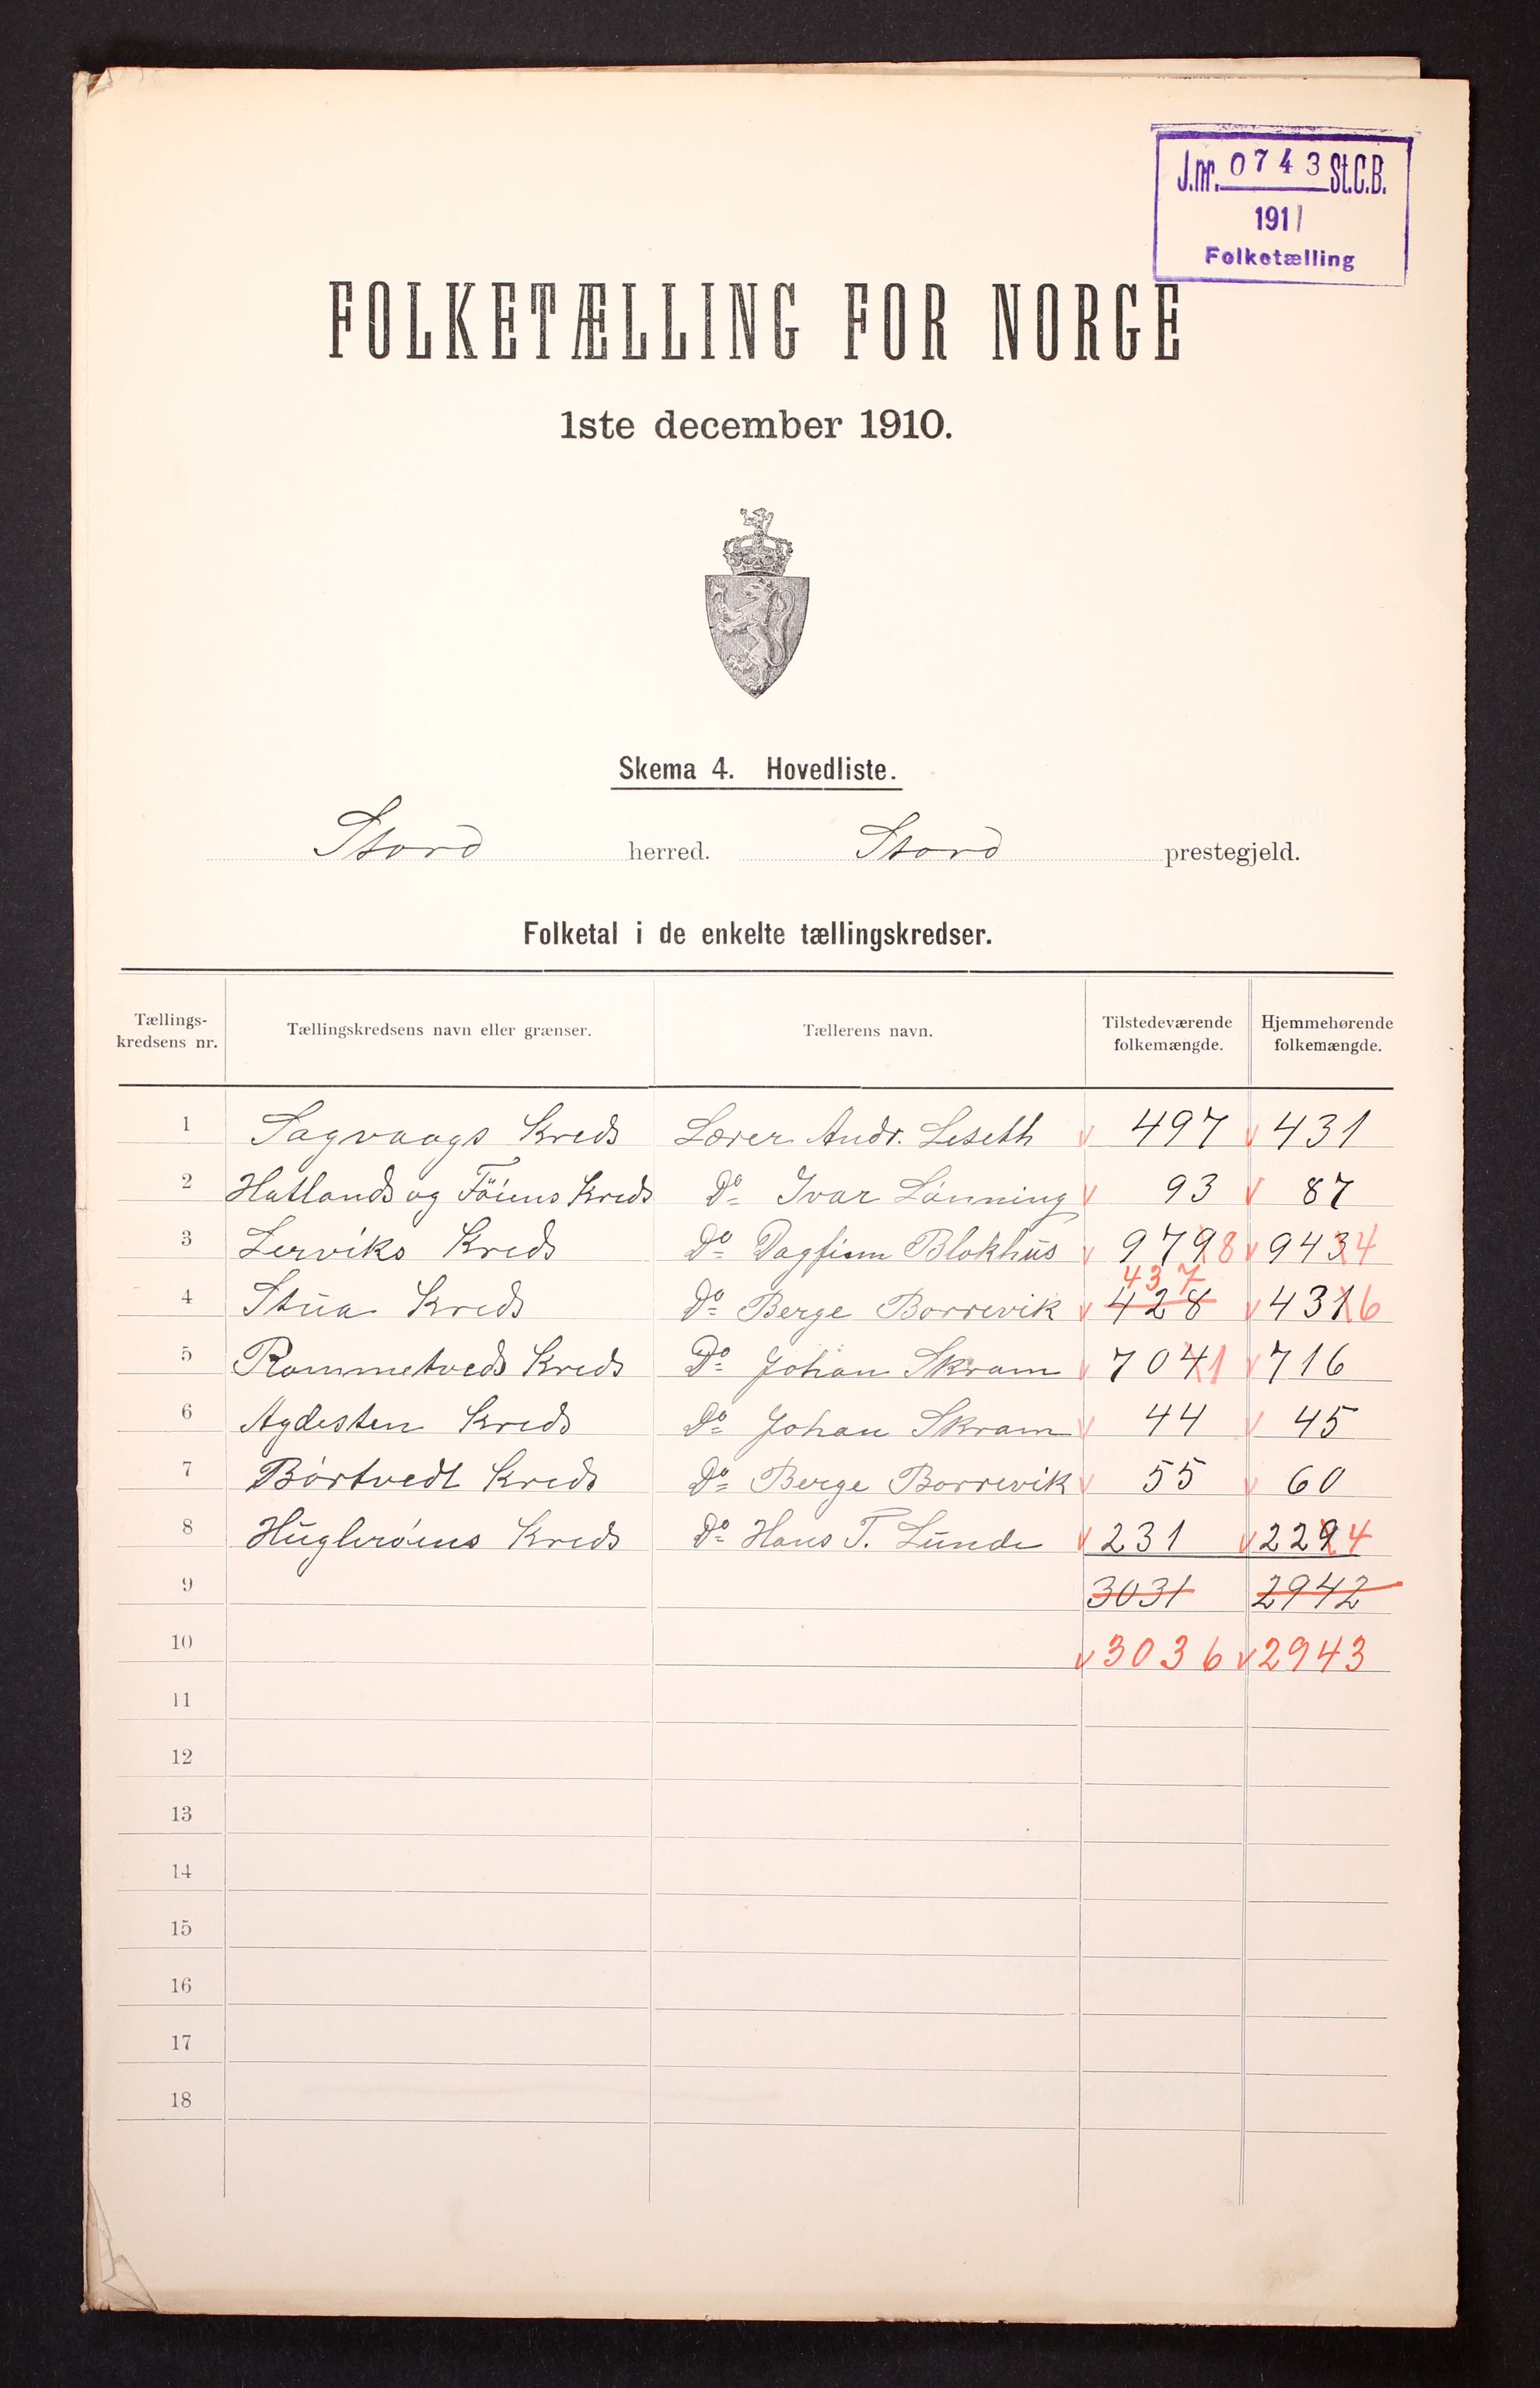 J.nr. 0743 St.C.B.
1911
Folketælling
FOLKETÆLLING FOR NORGE
1ste december 1910.
Skema 4. Hovedliste.
Stord herred. Stord prestegjeld.
Folketal i de enkelte tællingskredser.
Tællings-kredsens nr. Tællingskredsens navn eller grænser. Tællerens navn. Tilstedeværende folkemængde. Hjemmehørende folkemængde.
1 Sagvaags Kreds Lærer Andr. Leseth v 497 v 431
2 Hatlands og Föiens Kreds Do Ivar Lönning v 93 v 87
3 Lerviks Kreds Do Dagfinn Blokhus v 9798 v 9434
437
4 Stua Kreds Do Berge Borrevik v 428 v 4316
5 Rommetveds Kreds Do Johan Skram v 7041 v 716
6 Agdesten Kreds Do Johan Skram v 44 v 45
7 Börtvedt Kreds Do Berge Borrevik v 55 v 60
8 Huglröens Kreds Do Hans T. Lunde v 231 v 2294
9 3031 2942
10 v 3036 v 2943
11
12
13
14
15
16
17
18